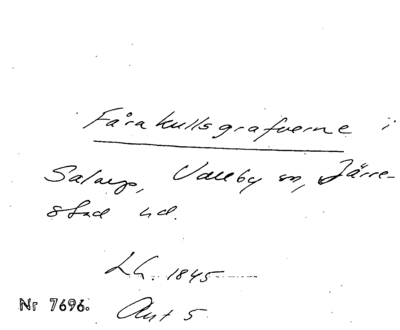 Fårakullsgrafverne i
Salarp, Valleby sn, Järre-
stad hd.
Lh. 1845
Nr 7696.
Ant 5